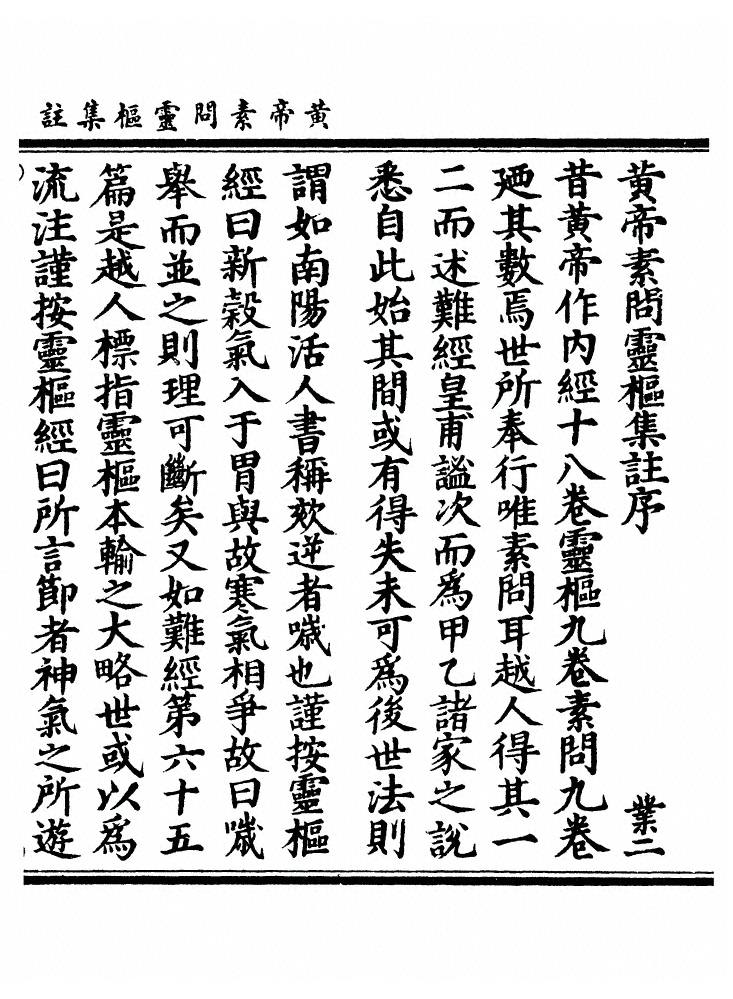 黃帝素問靈樞集註
黃帝素問靈樞集註序 業二
昔黃帝作內經十八卷靈樞九卷素問九卷
廼其數焉世所奉行唯素問耳越人得其一
二而述難經皇甫謐次而爲甲乙諸家之說
悉自此始其間或有得失未可爲後世法則
謂如南陽活人書稱欬逆者噦也謹按靈樞
經曰新榖氣入于胃與故寒氣相爭故曰噦
舉而並之則理可斷矣又如難經第六十五
篇是越人標指靈樞本輸之大略世或以爲
流注謹按靈樞經曰所言節者神氣之所遊